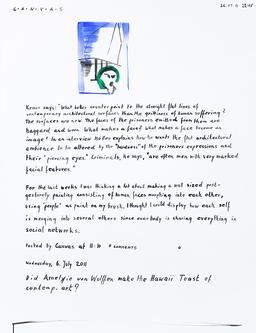 C-A-N-V-A-S
Kraus says: "What better counterpoint to the straight flat lines of
contemporary architectural surfaces than the grittiness of human suffering?
The surfaces are new. The faces of the prisoners emitted from them are
haggard and worn. What makes a face? What makes a face become an
image? In an interview Höller explains how he wants the flat architectural
ambience to be altered by the "hardness" of the prisoners expressions and
their "piercing eyes." Criminals, he says, "are often men with very marked
facial features."
For the last weeks I was thinking a lot about making a wall sized post-
gesturely painting consisting of human faces morphing into each other,
using "people" as paint on my brush. I thought I would display how each self
is merging into several others since everybody is sharing everything in
social networks.
Posted by Canvas at 11:10 0 comments
Wednesday, 6. July 2011
Did Amelyie von Wulffen make the Hawaii Toast of
contemp. art?